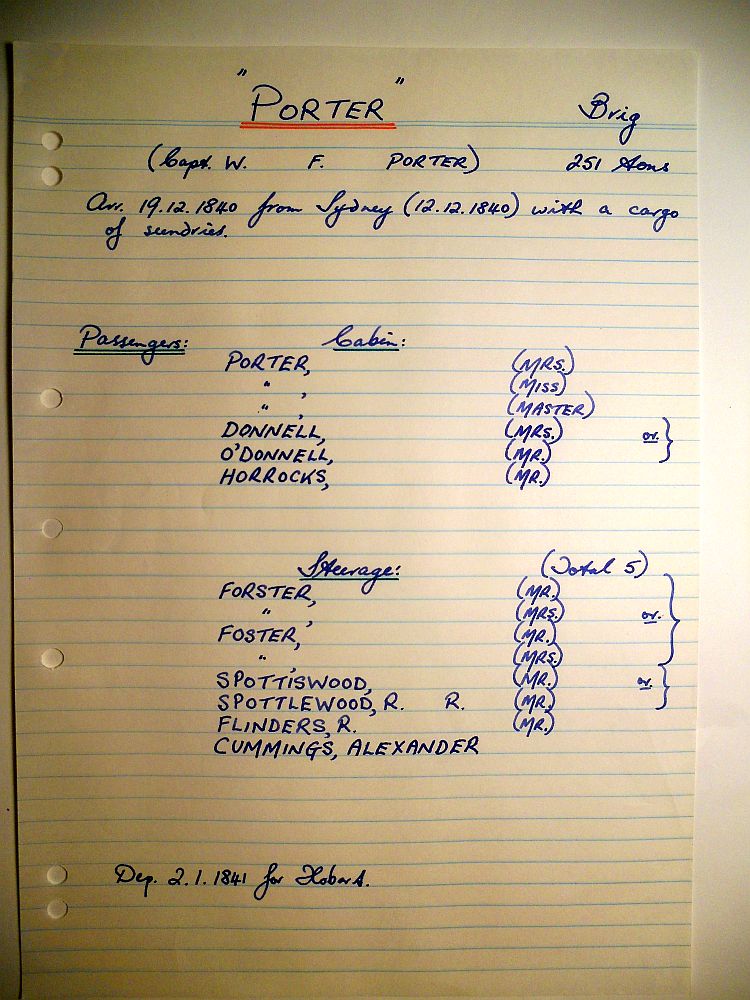 "PORTER" Brig
(Capt. W. F. PORTER) 251 tons
Arr. 19.12.1840 from Sydney (12.12.1840) with a cargo
of sundries.
Passengers: Cabin:
PORTER, (MRS.)
" , (MISS)
" , (MASTER)
DONNELL, (MRS.) or.
O'DONNELL, (MR.)
HORROCKS, (MR.)
Steerage: (Total 5)
FORSTER, (MR.)
" , (MRS.) or.
FOSTER, (MR.)
" , (MRS.)
SPOTTISWOOD, (MR.) or.
SPOTTLEWOOD, R. R. (MR.)
FLINDERS, R. (MR.)
CUMMINGS, ALEXANDER
Dep. 2.1.1841 for Hobart.